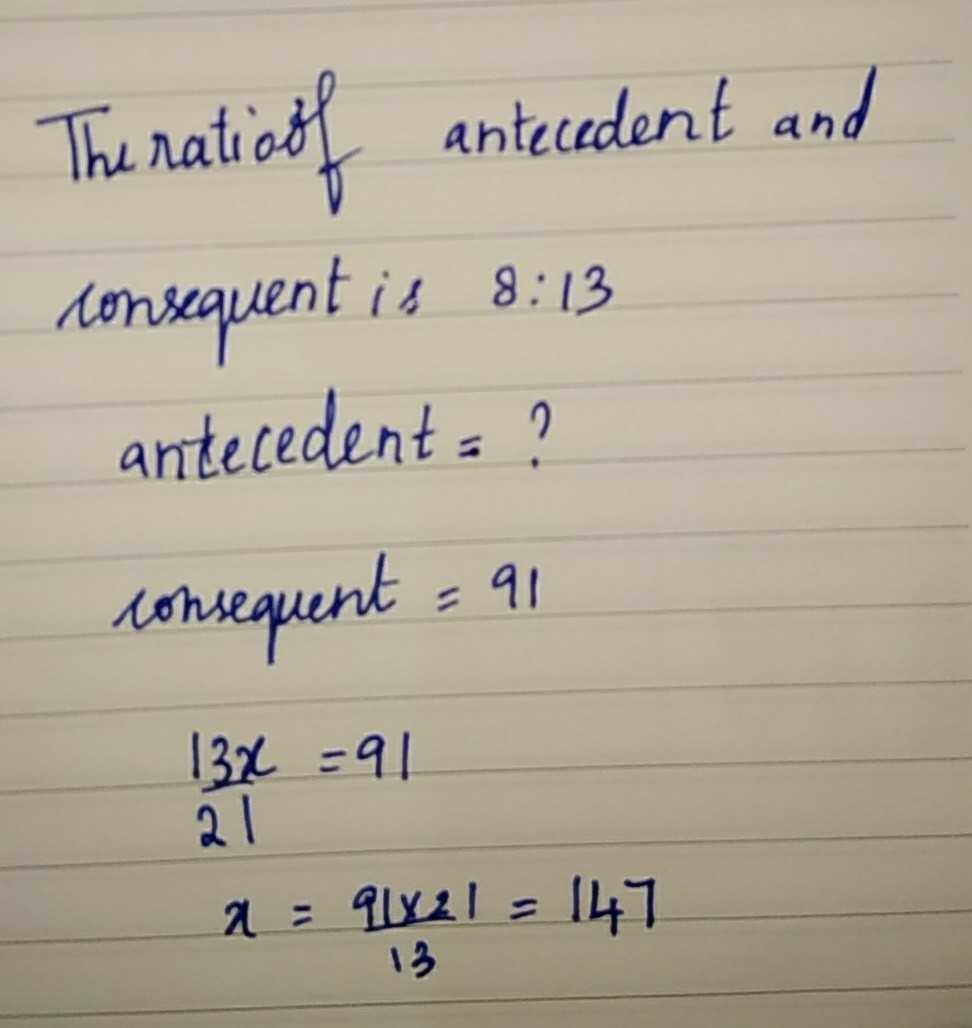 The ratio of antecedent and
consequent is 8:13
antecedent = ?
consequent = 91
13x = 91
21
x = 91x21 = 147
13